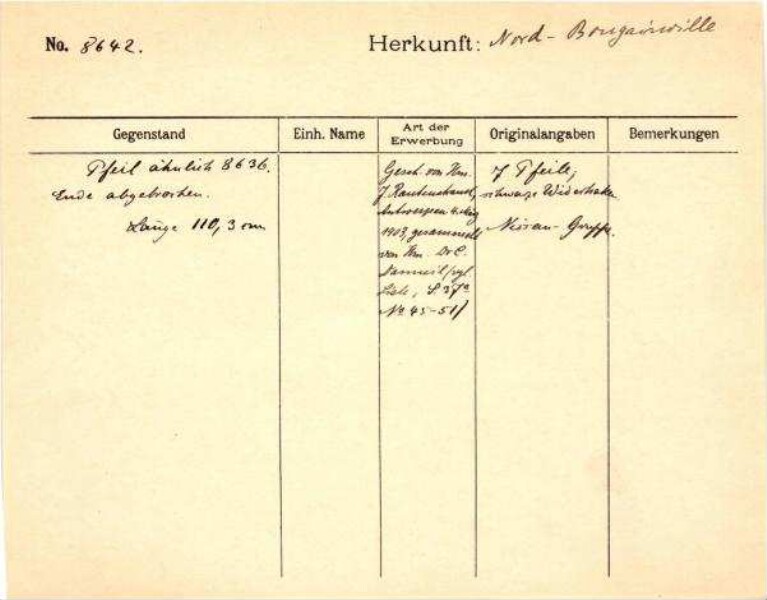 No. 8642.
Herkunft: Nord-Bougainville
Gegenstand
Einh. Name
Art der Erwerbung
Originalangaben
Bemerkungen
Pfeil ähnlich 8636.
Ende abgebrochen.
Länge 110,3 cm
Gesch. von Hrn.
J. Rautenstrauch,
Antwerpen
1903, gesammelt
von Hrn. Dr C.
Liste, S. 37a
No 45-51/
7 Pfeile,
schwarze Widerhaken
Nissan-Gruppe.